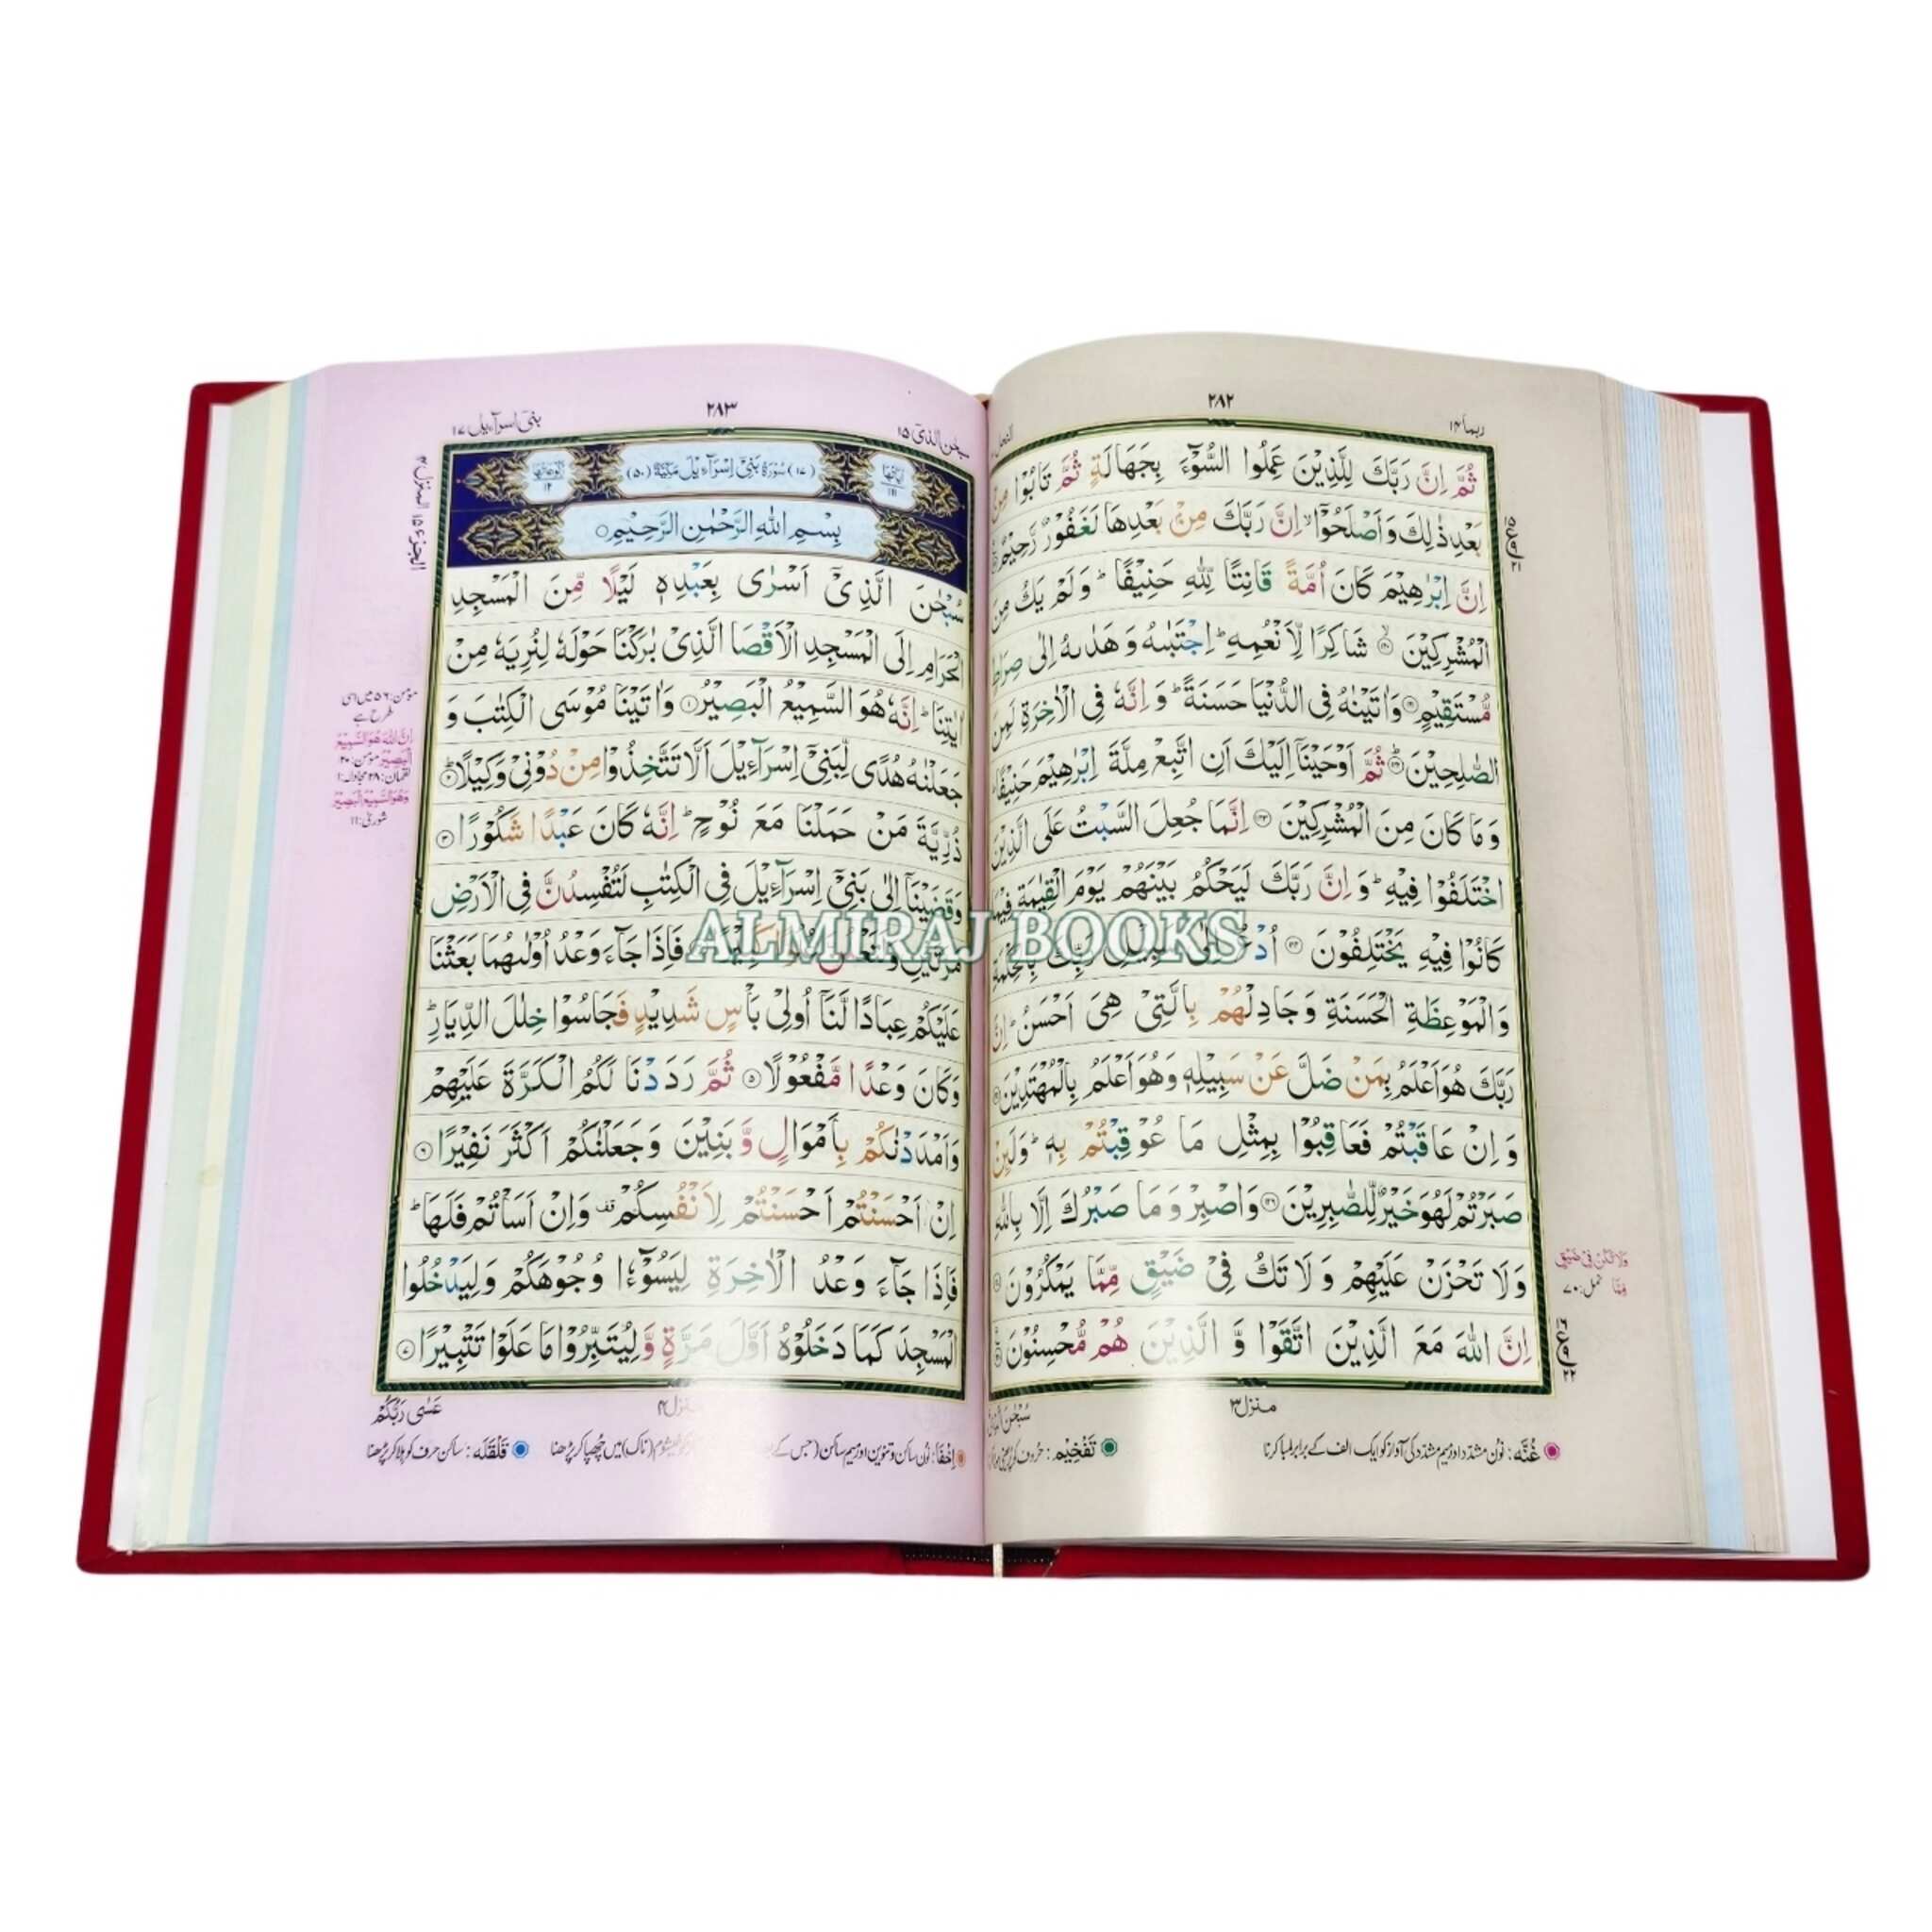 ربما ١٤
٢٨٢
ثُمَّ اِنَّ رَبَّكَ لِلَّذِيْنَ عَمِلُوا السُّوْٓءَ بِجَهَالَةٍ ثُمَّ تَابُوْا مِنْۢ
بَعْدِ ذٰلِكَ وَاَصْلَحُوْٓا ۙ اِنَّ رَبَّكَ مِنْۢ بَعْدِهَا لَغَفُوْرٌ رَّحِيْمٌ
اِنَّ اِبْرٰهِيْمَ كَانَ اُمَّةً قَانِتًا لِّلّٰهِ حَنِيْفًا ؕ وَلَمْ يَكُ مِنَ
الْمُشْرِكِيْنَ ۙ﴿۱۲۰﴾ شَاكِرًا لِّاَنْعُمِهٖ ؕ اِجْتَبٰىهُ وَهَدٰىهُ اِلٰى صِرَاطٍ
مُّسْتَقِيْمٍ ﴿۱۲۱﴾ وَاٰتَيْنٰهُ فِى الدُّنْيَا حَسَنَةً ؕ وَاِنَّهٗ فِى الْاٰخِرَةِ لَمِنَ
الصّٰلِحِيْنَ ؕ﴿۱۲۲﴾ ثُمَّ اَوْحَيْنَآ اِلَيْكَ اَنِ اتَّبِعْ مِلَّةَ اِبْرٰهِيْمَ حَنِيْفًا ؕ
وَمَا كَانَ مِنَ الْمُشْرِكِيْنَ ﴿۱۲۳﴾ اِنَّمَا جُعِلَ السَّبْتُ عَلَى الَّذِيْنَ
اخْتَلَفُوْا فِيْهِ ؕ وَاِنَّ رَبَّكَ لَيَحْكُمُ بَيْنَهُمْ يَوْمَ الْقِيٰمَةِ فِيْمَا
كَانُوْا فِيْهِ يَخْتَلِفُوْنَ ﴿۱۲۴﴾ اُدْعُ اِلٰى سَبِيْلِ رَبِّكَ بِالْحِكْمَةِ
وَالْمَوْعِظَةِ الْحَسَنَةِ وَجَادِلْهُمْ بِالَّتِىْ هِىَ اَحْسَنُ ؕ اِنَّ
رَبَّكَ هُوَ اَعْلَمُ بِمَنْ ضَلَّ عَنْ سَبِيْلِهٖ وَهُوَ اَعْلَمُ بِالْمُهْتَدِيْنَ
وَاِنْ عَاقَبْتُمْ فَعَاقِبُوْا بِمِثْلِ مَا عُوْقِبْتُمْ بِهٖ ؕ وَلَئِنْ
صَبَرْتُمْ لَهُوَ خَيْرٌ لِّلصّٰبِرِيْنَ ﴿۱۲۶﴾ وَاصْبِرْ وَمَا صَبْرُكَ اِلَّا بِاللّٰهِ
وَلَا تَحْزَنْ عَلَيْهِمْ وَلَا تَكُ فِىْ ضَيْقٍ مِّمَّا يَمْكُرُوْنَ
اِنَّ اللّٰهَ مَعَ الَّذِيْنَ اتَّقَوْا وَّالَّذِيْنَ هُمْ مُّحْسِنُوْنَ
وَلَا تَكُنْ فِىْ ضَيْقٍ
مِّمَّا نمل: ۷۰
منزل ٣
غُنَّه: نون مشدد اور میم مشدد کی آواز کو ایک الف کے برابر لمبا کرنا
تَفْخِيْم: حروف کو
سبحٰن الذی ١٥
٢٨٣
بنی اسرآءیل ١٧
اٰيَاتُهَا ١١١
(١٧) سُوْرَةُ بَنِىْٓ اِسْرَآءِيْلَ مَكِّيَّةٌ (٥٠)
رُكُوْعَاتُهَا ١٢
بِسْمِ اللّٰهِ الرَّحْمٰنِ الرَّحِيْمِ
سُبْحٰنَ الَّذِىْٓ اَسْرٰى بِعَبْدِهٖ لَيْلًا مِّنَ الْمَسْجِدِ
الْحَرَامِ اِلَى الْمَسْجِدِ الْاَقْصَا الَّذِىْ بٰرَكْنَا حَوْلَهٗ لِنُرِيَهٗ مِنْ
اٰيٰتِنَا ؕ اِنَّهٗ هُوَ السَّمِيْعُ الْبَصِيْرُ ﴿۱﴾ وَاٰتَيْنَا مُوْسَى الْكِتٰبَ وَ
جَعَلْنٰهُ هُدًى لِّبَنِىْٓ اِسْرَآءِيْلَ اَلَّا تَتَّخِذُوْا مِنْ دُوْنِىْ وَكِيْلًا ؕ﴿۲﴾
ذُرِّيَّةَ مَنْ حَمَلْنَا مَعَ نُوْحٍ ؕ اِنَّهٗ كَانَ عَبْدًا شَكُوْرًا ﴿۳﴾
وَقَضَيْنَآ اِلٰى بَنِىْٓ اِسْرَآءِيْلَ فِى الْكِتٰبِ لَتُفْسِدُنَّ فِى الْاَرْضِ
مَرَّتَيْنِ وَلَتَعْلُنَّ فَاِذَا جَآءَ وَعْدُ اُوْلٰىهُمَا بَعَثْنَا
عَلَيْكُمْ عِبَادًا لَّنَآ اُولِىْ بَاْسٍ شَدِيْدٍ فَجَاسُوْا خِلٰلَ الدِّيَارِ ؕ
وَكَانَ وَعْدًا مَّفْعُوْلًا ﴿۵﴾ ثُمَّ رَدَدْنَا لَكُمُ الْكَرَّةَ عَلَيْهِمْ
وَاَمْدَدْنٰكُمْ بِاَمْوَالٍ وَّبَنِيْنَ وَجَعَلْنٰكُمْ اَكْثَرَ نَفِيْرًا ﴿۶﴾
اِنْ اَحْسَنْتُمْ اَحْسَنْتُمْ لِاَنْفُسِكُمْ ۟ وَاِنْ اَسَاْتُمْ فَلَهَا ؕ
فَاِذَا جَآءَ وَعْدُ الْاٰخِرَةِ لِيَسُوْٓءٗا وُجُوْهَكُمْ وَلِيَدْخُلُوا
الْمَسْجِدَ كَمَا دَخَلُوْهُ اَوَّلَ مَرَّةٍ وَّلِيُتَبِّرُوْا مَا عَلَوْا تَتْبِيْرًا ﴿۷﴾
مؤمن: ۵۶ میں اسی
طرح ہے
اِنَّ اللّٰهَ هُوَ السَّمِيْعُ
الْبَصِيْرُ مؤمن: ۲۰
وَهُوَ السَّمِيْعُ الْبَصِيْرُ
شورٰی: ۱۱
منزل ٤
عَسٰى رَبُّكُمْ
اِخْفَا: نون ساکن و تنوین اور میم ساکن (ناک) میں چھپا کر پڑھنا
قَلْقَلَه: ساکن حرف کو ہلا کر پڑھنا
ALMIRAJ BOOKS